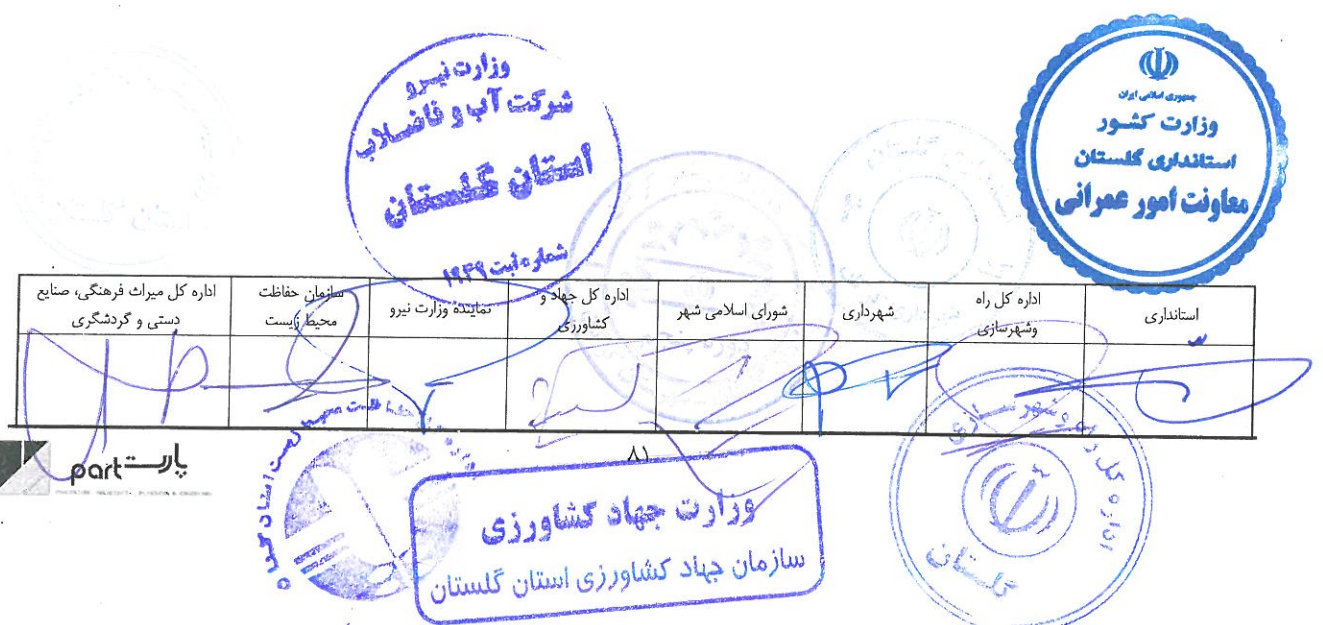 وزارت نیرو
شرکت آب و فاضلاب
استان گلستان
شماره ثبت ۱۹۴۹
جمهوری اسلامی ایران
وزارت کشور
استانداری گلستان
معاونت امور عمرانی
استانداری
اداره کل راه
وشهرسازی
شهرداری
شورای اسلامی شهر
اداره کل جهاد و
کشاورزی
نماینده وزارت نیرو
سازمان حفاظت
محیط زیست
اداره کل میراث فرهنگی، صنایع
دستی و گردشگری
۸۱
پارت part
وزارت جهاد کشاورزی
سازمان جهاد کشاورزی استان گلستان
اداره کل راه و شهرسازی
گلستان